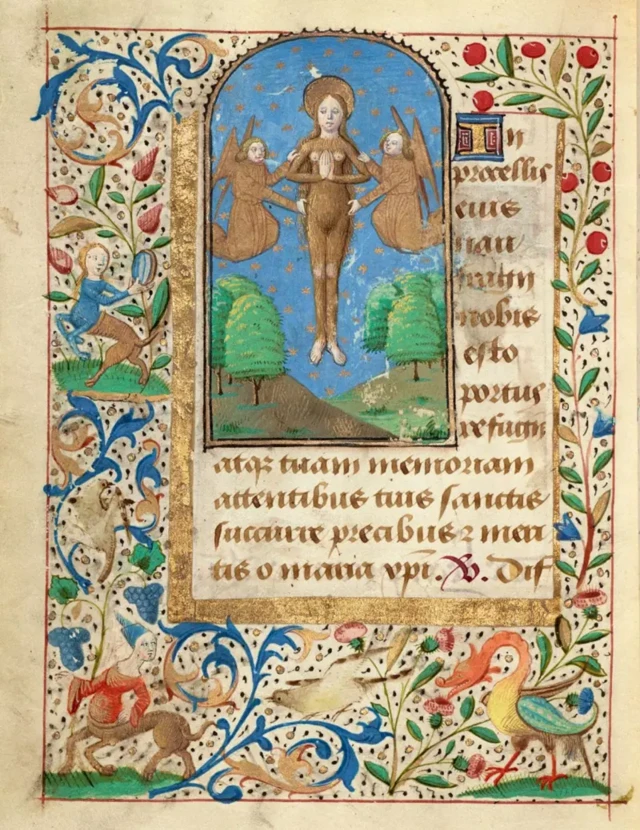 In
procellis
eius
nau
nobis
esto
portus
refugii
atqꝫ tuam memoriam
attentibus tuis sanctis
succurre precibus ⁊ meri
tis o maria xp̄i. V. Dif